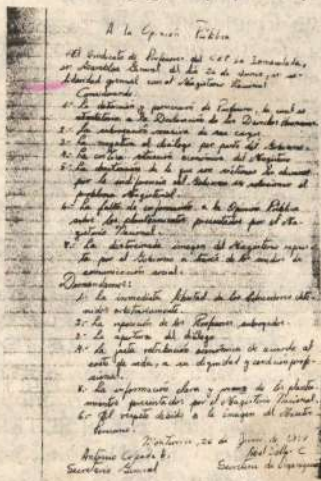 A la Opinión Pública
El Sindicato de Profesores del CEP La Inmaculada,
en Asamblea General del día 20 de Junio, en so-
lidaridad general con el Magisterio Nacional
Considerando:
1.- La detención y persecución de Profesores, lo cual es
atentatorio a la Declaración de los Derechos Humanos.
2.- La subrogación masiva de sus cargos.
3.- La negativa al diálogo por parte del Gobierno.
4.- La crítica situación económica del Magisterio
5.- La de la que son víctimas los alumnos
por la indiferencia del Gobierno en solucionar el
problema Magisterial.
6.- La falta de información a la Opinión Pública
sobre los planteamientos presentados por el Ma-
gisterio Nacional.
7.- La distorsionada imagen del Magisterio
por el Gobierno a través de los medios de
comunicación social.
Demandamos:
1.- La inmediata libertad de los Educadores dete-
nidos arbitrariamente.
2.- La reposición de los Profesores subrogados.
3.- La apertura del diálogo.
4.- La justa retribución económica de acuerdo al
costo de vida, a su dignidad y condición profe-
sional.
5.- La información clara y veraz de los plantea-
mientos presentados por el Magisterio Nacional.
6.- El respeto debido a la imagen del Maestro
Peruano.
20 de Junio de
Antonio
Secretario General
Secretaria de